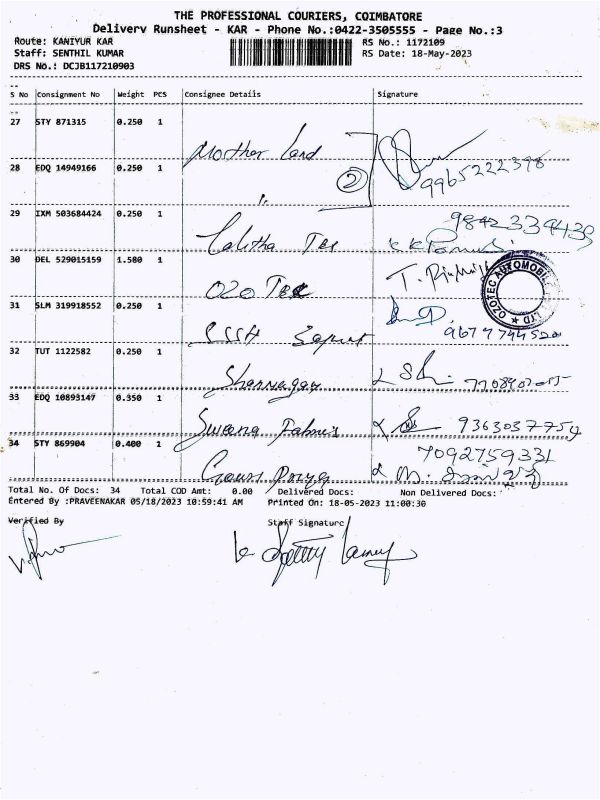 THE PROFESSIONAL COURIERS, COIMBATORE
Delivery Runsheet - KAR - Phone No.:0422-3505555 - Page No.:3
Route: KANIYUR KAR RS No.: 1172109
Staff: SENTHIL KUMAR RS Date: 18-May-2023
DRS No.: DCJB117210903
S No Consignment No Weight PCS Consignee Details Signature
27 STY 871315 0.250 1
Mother Land
28 EDQ 14949166 0.250 1
2 9965222398
29 IXM 503684424 0.250 1
Lalitha Tex 9842339439
30 DEL 529015159 1.580 1
OZO Tec
OZOTEC AUTOMOBILE LTD
31 SLM 319918552 0.250 1
32 TUT 1122582 0.250 1
33 EDQ 10893147 0.350 1
9363037759
34 STY 869904 0.400 1
7092759331
Total No. Of Docs: 34 Total COD Amt: 0.00 Delivered Docs: Non Delivered Docs:
Entered By :PRAVEENAKAR 05/18/2023 10:59:41 AM Printed On: 18-05-2023 11:00:30
Verified By Staff Signature